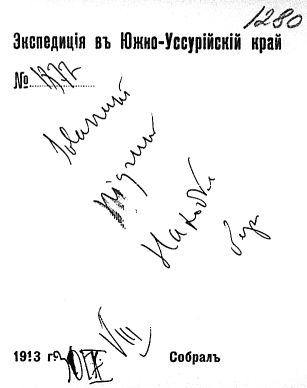 1280
Экспедиція въ Южно-Уссурійскій край
№ 1372
Solanum
nigrum
Находка
1913 г. VIII
Собралъ